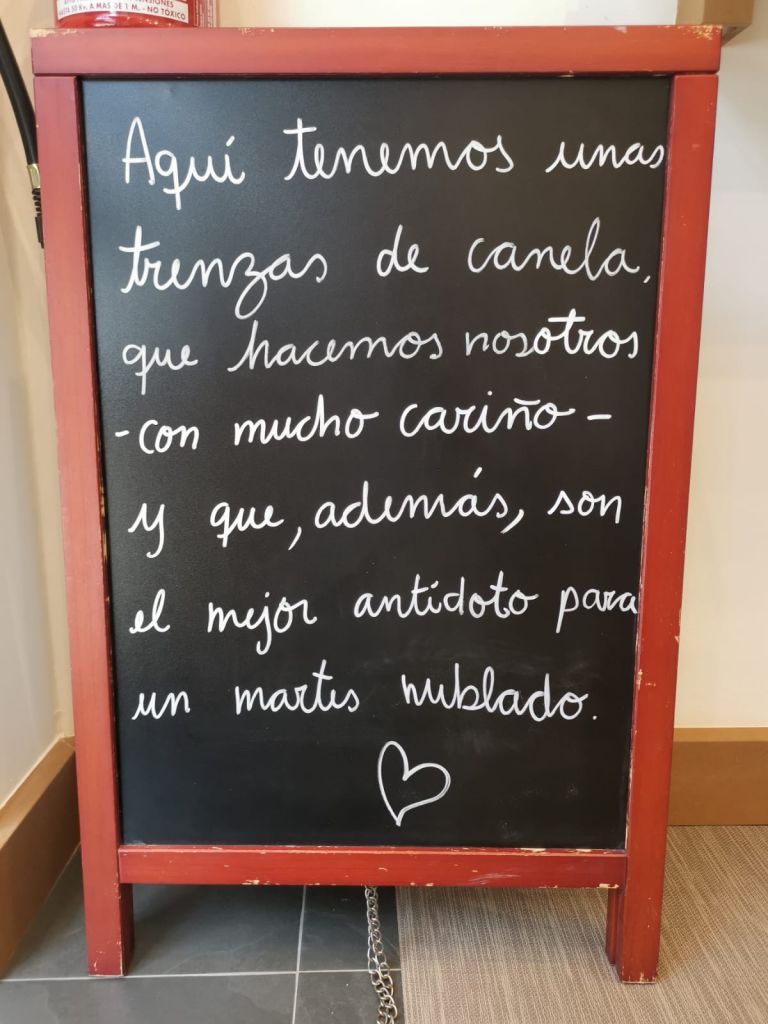 HASTA 50 Kv. A MAS DE 1 M. - NO TOXICO
Aquí tenemos unas
trenzas de canela,
que hacemos nosotros
-con mucho cariño-
y que, además, son
el mejor antídoto para
un martes nublado.